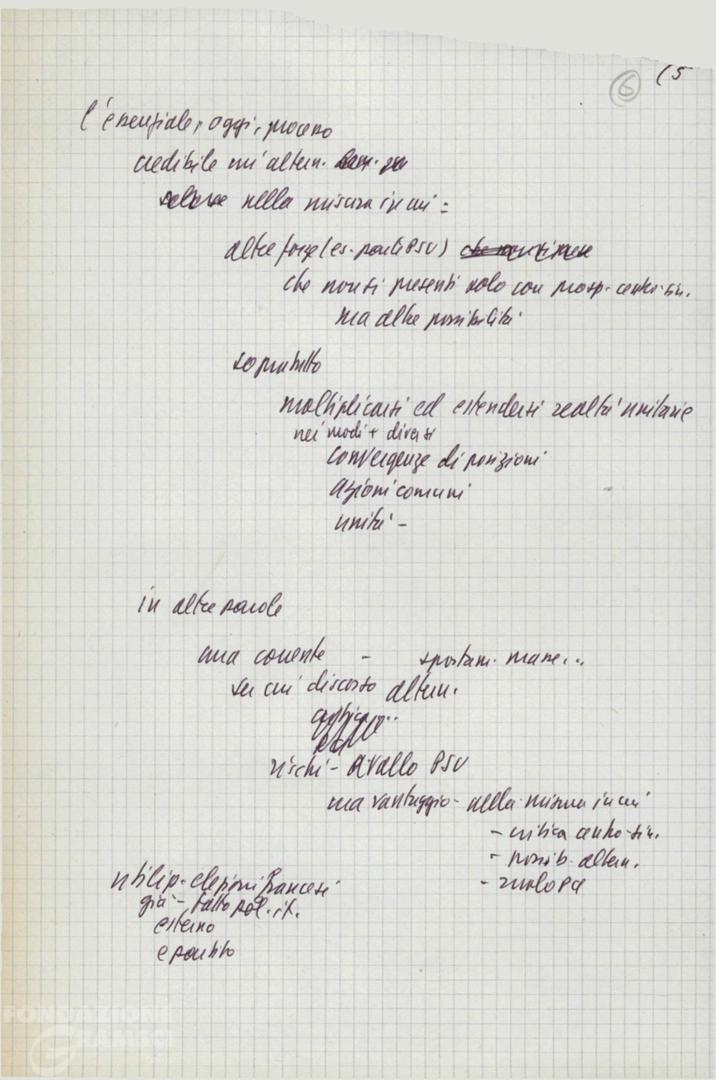 6 (5
l'essenziale, oggi, processo
credibile un'altern.
nella misura in cui =
altre forze (es. parti PSU)
che non si presenti solo con prosp. centro-sin.
ma altre possibilità
soprattutto
moltiplicarsi ed estendersi realtà unitarie
nei modi + diversi
convergenze di posizioni
azioni comuni
unità -
in altre parole
una corrente - spostam. masse...
su cui discorso altern.
rischi - avallo PSU
ma vantaggio - nella misura in cui
- critica centro-sin.
- possib. altern.
- ruolo PCI
utilizz. elezioni francesi
già - fatto pol. it.
esterno
e partito
FONDAZIONE
GRAMSCI